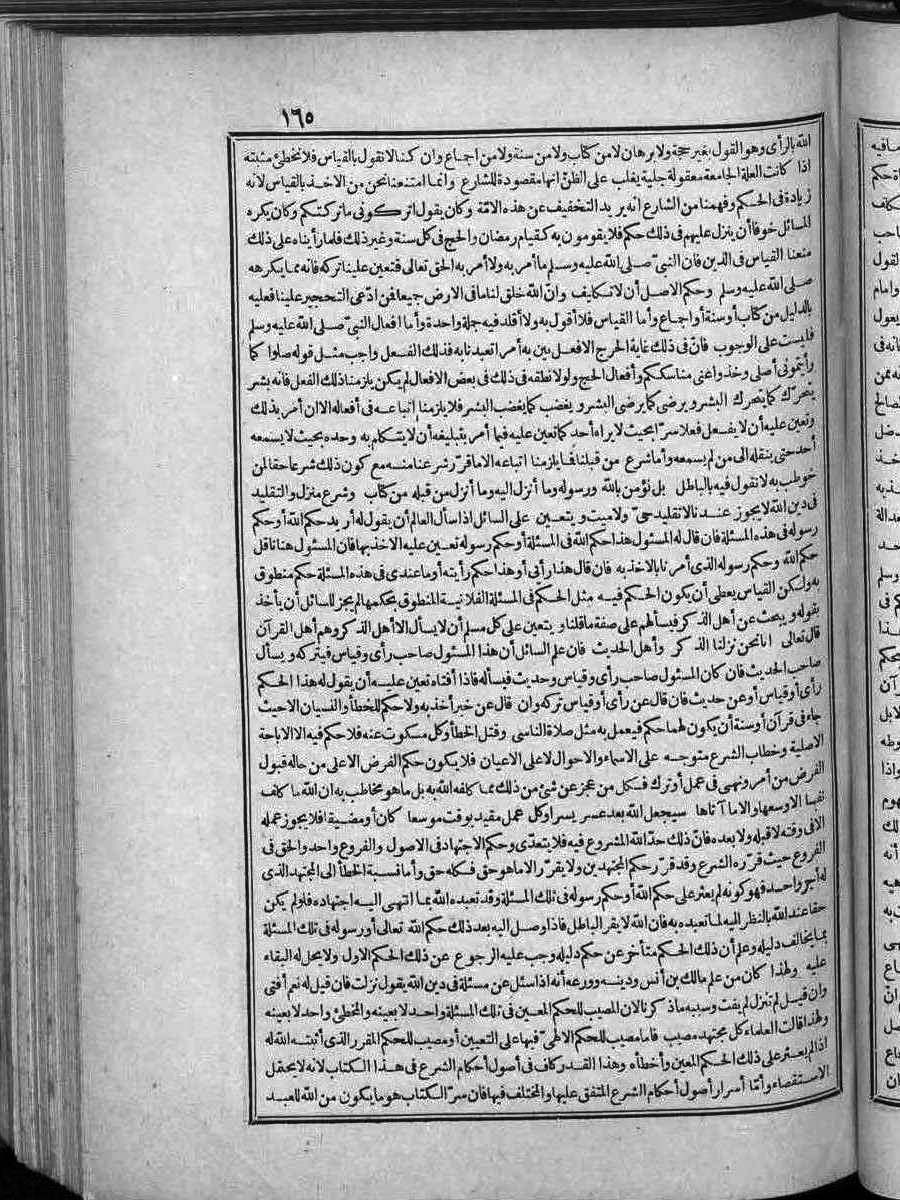 ١٦٥
الله بالرأى وهو القول بغير حجة ولا برهان لا من كتاب ولا من سنة ولا من اجماع وان كنا لا نقول بالقياس فلا نخطئ مثبته
اذا كانت العلة الجامعة معقولة جلية يغلب على الظنّ انها مقصودة للشارع وانما امتنعنا نحن من الاخذ بالقياس لانه
زيادة فى الحكم وفهمنا من الشارع انه يريد التخفيف عن هذه الامّة وكان يقول اتركونى ما تركتكم وكان يكره
المسائل خوفا أن ينزل عليهم فى ذلك حكم فلا يقومون به كقيام رمضان والحج فى كل سنة وغير ذلك فلما رأيناه على ذلك
منعنا القياس فى الدين فان النبىّ صلى الله عليه وسلم ما أمر به ولا أمر به الحق تعالى فتعين علينا تركه فانه مما يكرهه
صلى الله عليه وسلم وحكم الاصل أن لا تكليف وانّ الله خلق لنا ما فى الارض جميعا فمن ادّعى التحجير علينا فعليه
بالدليل من كتاب أوسنة أو اجماع وأما القياس فلا أقول به ولا أقلد فيه جملة واحدة وأما افعال النبىّ صلى الله عليه وسلم
فليست على الوجوب فانّ فى ذلك غاية الحرج الا فعل بين به أمر اتعبدنا به فذلك الفعل واجب مثل قوله صلوا كما
رأيتمونى أصلى وخذوا عنى مناسككم وأفعال الحج ولولا نطقه فى ذلك فى بعض الافعال لم يكن يلزمنا ذلك الفعل فانه بشر
يتحرّك كما يتحرك البشر ويرضى كما يرضى البشر ويغضب كما يغضب البشر فلا يلزمنا اتباعه فى أفعاله الا ان أمر بذلك
وتعين عليه أن لا يفعل فعلا سرّا بحيث لا يراه أحد كما تعين عليه فيما أمر بتبليغه أن لا يتكلم به وحده بحيث لا يسمعه
أحد حتى ينقله الى من لم يسمعه وأما شرع من قبلنا فما يلزمنا اتباعه الا ما قرّر شرعنا منه مع كون ذلك شرعا حقا لمن
خوطب به لا نقول فيه بالباطل بل نؤمن بالله ورسوله وما أنزل اليه وما أنزل من قبله من كتاب وشرع منزل والتقليد
فى دين الله لا يجوز عندنا لا تقليد حىّ ولا ميت ويتعين على السائل اذا سأل العالم أن يقول له أريد حكم الله أو حكم
رسوله فى هذه المسئلة فان قال له المسئول هذا حكم الله فى المسئلة أو حكم رسوله تعين عليه الاخذ بها فان المسئول هنا ناقل
حكم الله وحكم رسوله الذى أمرنا بالاخذ به فان قال هذا رأيى أو هذا حكم رأيته أو ما عندى فى هذه المسئلة حكم منطوق
به ولكن القياس يعطى أن يكون الحكم فيه مثل الحكم فى المسئلة الفلانية المنطوق بحكمها لم يجز للسائل أن يأخذ
بقوله ويبحث عن أهل الذكر فيسألهم على صفة ما قلنا ويتعين على كل مسلم أن لا يسأل الا أهل الذكر وهم أهل القرآن
قال تعالى انا نحن نزلنا الذكر وأهل الحديث فان علم السائل أن هذا المسئول صاحب رأى وقياس فيتركه ويسأل
صاحب الحديث فان كان المسئول صاحب رأى وقياس وحديث فيسأله فاذا أفتاه تعين عليه أن يقول له هذا الحكم
رأى أو قياس أو عن حديث فان قال عن رأى أو قياس تركه وان قال عن خبر أخذ به ولا حكم للخطأ والنسيان الا حيث
جاء فى قرآن أوسنة أن يكون لهما حكم فيعمل به مثل صلاة الناسى وقتل الخطأ وكل مسكوت عنه فلا حكم فيه الا الاباحة
الاصلية وخطاب الشرع متوجه على الاسماء والاحوال لا على الاعيان فلا يكون حكم الفرض الا على من حاله قبول
الفرض من أمر ونهى فى عمل أو ترك فكل من عجز عن شئ من ذلك مما كلفه الله به بل ما هو مخاطب به ان الله ما كلف
نفسا الا وسعها والا ما آتاها سيجعل الله بعد عسر يسرا وكل عمل مقيد بوقت موسعا كان أو مضيقا فلا يجوز عمله
الا فى وقته لا قبله ولا بعده فانّ ذلك حدّ الله المشروع فيه فلا يتعدّى وحكم الاجتهاد فى الاصول والفروع واحد والحق فى
الفروع حيث قرّره الشرع وقد قرّر حكم المجتهدين ولا يقرّر الا ما هو حق فكله حق وأما نسبة الخطأ الى المجتهد الذى
له أجر واحد فهو كونه لم يعثر على حكم الله أو حكم رسوله فى تلك المسئلة وقد تعبده الله بما انتهى اليه اجتهاده فلو لم يكن
حقا عند الله بالنظر اليه لما تعبده به فان الله لا يقر الباطل فاذا وصل اليه بعد ذلك حكم الله تعالى أو رسوله فى تلك المسئلة
بما يخالف دليله وعلم أن ذلك الحكم متأخر عن حكم دليله وجب عليه الرجوع عن ذلك الحكم الاول ولا يحل له البقاء
عليه ولهذا كان من علم مالك بن أنس ودينه وورعه أنه اذا سئل عن مسئلة فى دين الله يقول نزلت فان قيل له نعم أفتى
وان قيل لم تنزل لم يفت وسببه ما ذكرنا لان المصيب للحكم المعين فى تلك المسئلة واحد لا بعينه والمخطئ واحد لا بعينه
ولهذا قالت العلماء كل مجتهد مصيب فاما مصيب للحكم الالهىّ فيها على التعيين أو مصيب للحكم المقرر الذى أثبته الله له
اذا لم يعثر على ذلك الحكم المعين وأخطأه وهذا القدر كاف فى أصول أحكام الشرع فى هذا الكتاب لانه لا يحتمل
الاستقصاء وأمّا أسرار أصول أحكام الشرع المتفق عليها والمختلف فيها فان سرّ الكتاب هو ما يكون من الله للعبد